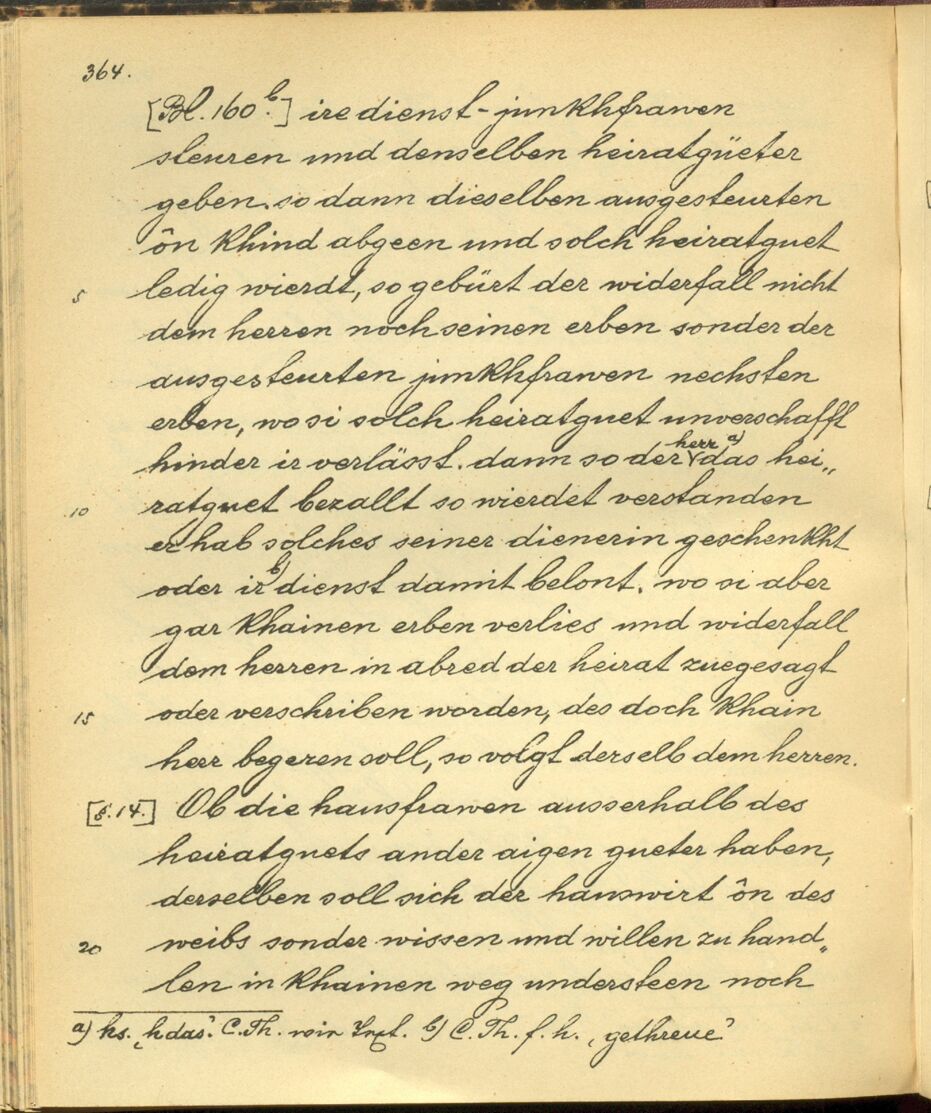 364.
[Bl. 160 b.] ire dienst-junkhfrawen
steuren und denselben heiratgüeter
geben. so dann dieselben ausgesteurten
ôn khind abgeen und solch heiratguet
5 ledig wierdt, so gebürt der widerfall nicht
dem herren noch seinen erben sonder der
ausgesteurten junkhfrawen nechsten
erben, wo si solch heiratguet unverschafft
hinder ir verlässt. dann so der herr a) das hei„
10 ratguet bezallt so wierdet verstanden
er hab solches seiner dienerin geschenkht
oder ir b) dienst damit belont. wo si aber
gar khainen erben verlies und widerfall
dem herren in abred der heirat zuegesagt
15 oder verschriben worden, des doch khain
herr begeren soll, so volgt derselb dem herren.
[§. 14.] Ob die hausfrawen ausserhalb des
heiratguets ander aigen gueter haben,
derselben soll sich der hauswirt ôn des
20 weibs sonder wissen und willen zu hand„
len in khainen weg understeen noch
a) hs. „h das". C. Th. wir Text. b) C. Th. f. h. „gethreue"